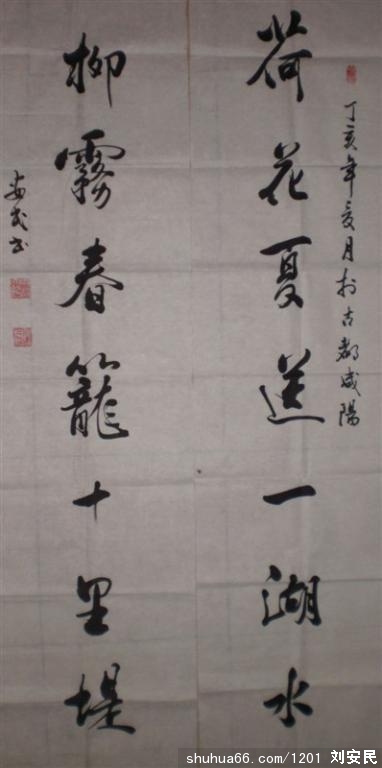 丁亥年夏月扵古都咸陽
荷花夏送一湖水
柳霧春籠十里堤
安民书
shuhua66.com/1201 刘安民